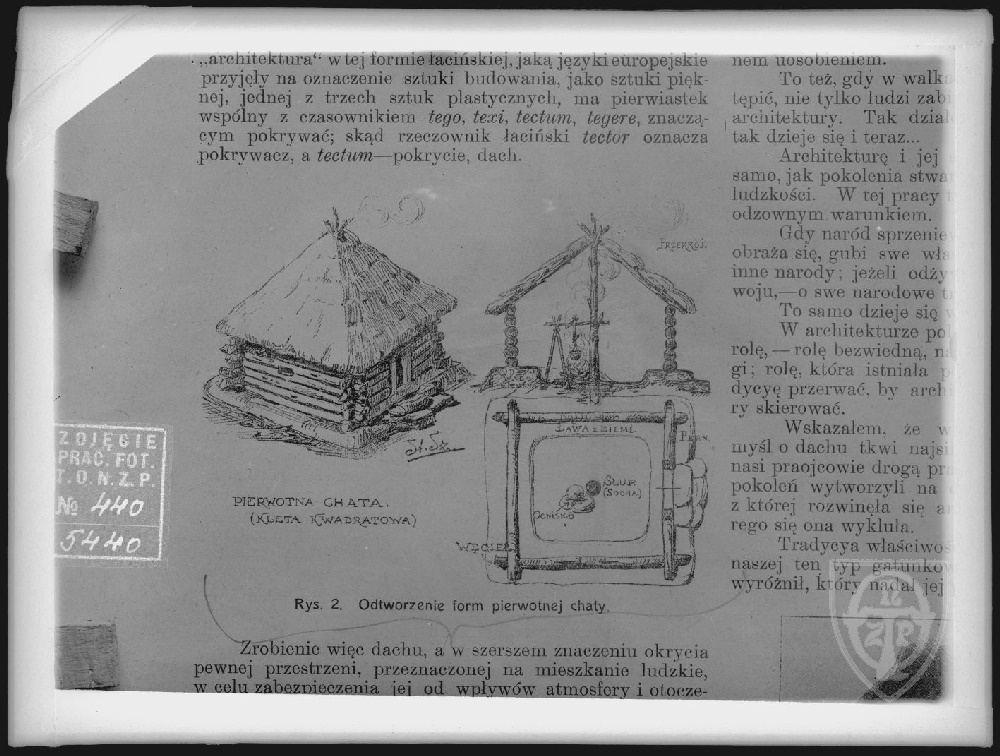 „architektura“ w tej formie łacińskiej, jaką języki europejskie
przyjęły na oznaczenie sztuki budowania, jako sztuki pięk-
nej, jednej z trzech sztuk plastycznych, ma pierwiastek
wspólny z czasownikiem tego, texi, tectum, tegere, znaczą-
cym pokrywać; skąd rzeczownik łaciński tector oznacza
pokrywacz, a tectum—pokrycie, dach.
PRZEKRÓJ.
ŁAWA Z ZIEMI.
SŁUP
(SOCHA)
OGNISKO
WĘGIEŁ
PIERWOTNA CHATA.
(KLETA KWADRATOWA)
Rys. 2. Odtworzenie form pierwotnej chaty.
Zrobienie więc dachu, a w szerszem znaczeniu okrycia
pewnej przestrzeni, przeznaczonej na mieszkanie ludzkie,
w celu zabezpieczenia jej od wpływów atmosfery i otocze-
nem uosobieniem.
To też, gdy w walk
tępić, nie tylko ludzi zab
architektury. Tak dział
tak dzieje się i teraz...
Architekturę i jej
samo, jak pokolenia stwa
ludzkości. W tej pracy
odzownym warunkiem.
Gdy naród sprzenie
obraża się, gubi swe wła
inne narody; jeżeli odży
woju,—o swe narodowe
To samo dzieje się
W architekturze pol
rolę,—rolę bezwiedną, n
gi; rolę, która istniała p
dycyę przerwać, by arch
ry skierować.
Wskazałem, że w
myśl o dachu tkwi najsi
nasi praojcowie drogą pr
pokoleń wytworzyli na
z której rozwinęła się a
rego się ona wykluła.
Tradycya właściwoś
naszej ten typ gatunkow
wyróżnił, który nadał jej
ZDJĘCIE
PRAC. FOT.
T.O.N.Z.P.
№ 440
5440
ZP